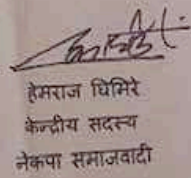 हेमराज घिमिरे
केन्द्रीय सदस्य
नेकपा समाजवादी